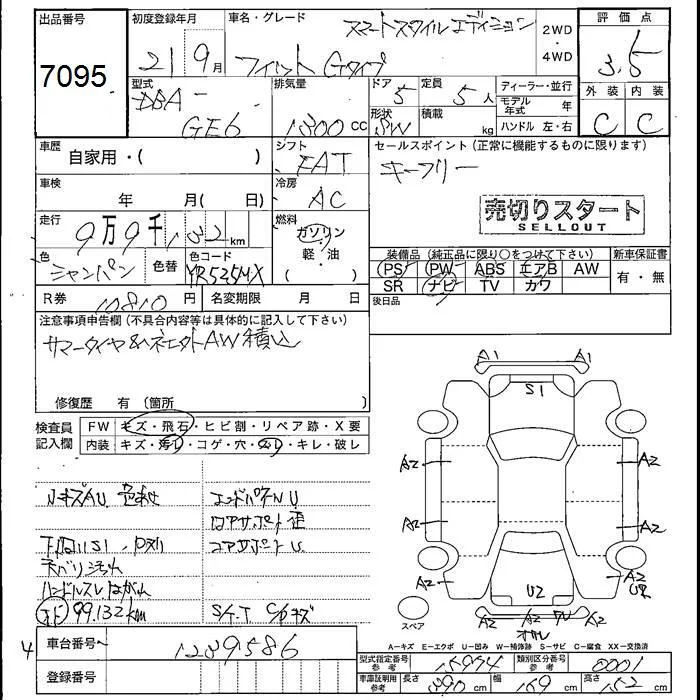 出品番号
7095
初度登録年月
21 9月
車名・グレード
スマートスタイルエディション
フィット Gタイプ
2WD
・
4WD
評価点
3.5
外装 内装
C C
型式
DBA-
GE6
排気量
1300cc
ドア 5
形状 5W
定員 5人
積載 kg
ディーラー・並行
モデル年式 年
ハンドル 左・右
車歴
自家用・( )
シフト
FAT
セールスポイント(正常に機能するものに限ります)
キーフリー
車検
年 月( 日)
冷房
AC
売切りスタート
SELLOUT
走行
9万9千132km
燃料
ガソリン
軽・油
( )
色
シャンパン
色替
色コード
YR525MX
装備品(純正品に限り○をつけて下さい)
PS PW ABS エアB AW
SR ナビ TV カワ
新車保証書
有・無
後日品
R券 10810円
名変期限 月 日
注意事項申告欄(不具合内容等は具体的に記入して下さい)
サマータイヤ&ハネエクトAW積込
修復歴 有(箇所
検査員
記入欄
FW キズ・飛石・ヒビ割・リペア跡・X要
内装 キズ・汚れ・コゲ・穴・スレ・キレ・破レ
小キズAU 色あせ
エンドパネルU
コアサポート歪
下回りS1
コアサポートU
ネバリ汚れ
ハンドルスレはがれ
99.132km
S/T C/Pキズ
A1 A1
S1
A2 A2
A2 A2
A2 A2
U2
A2
スペア
A-キズ E-エクボ U-凹み W-補修跡 S-サビ C-腐食 XX-交換済
4
車台番号
1289586
登録番号
型式指定番号
参考
15974
類別区分番号
参考
0001
車庫証明用
参考
長さ 390cm
幅 169cm
高さ 152cm